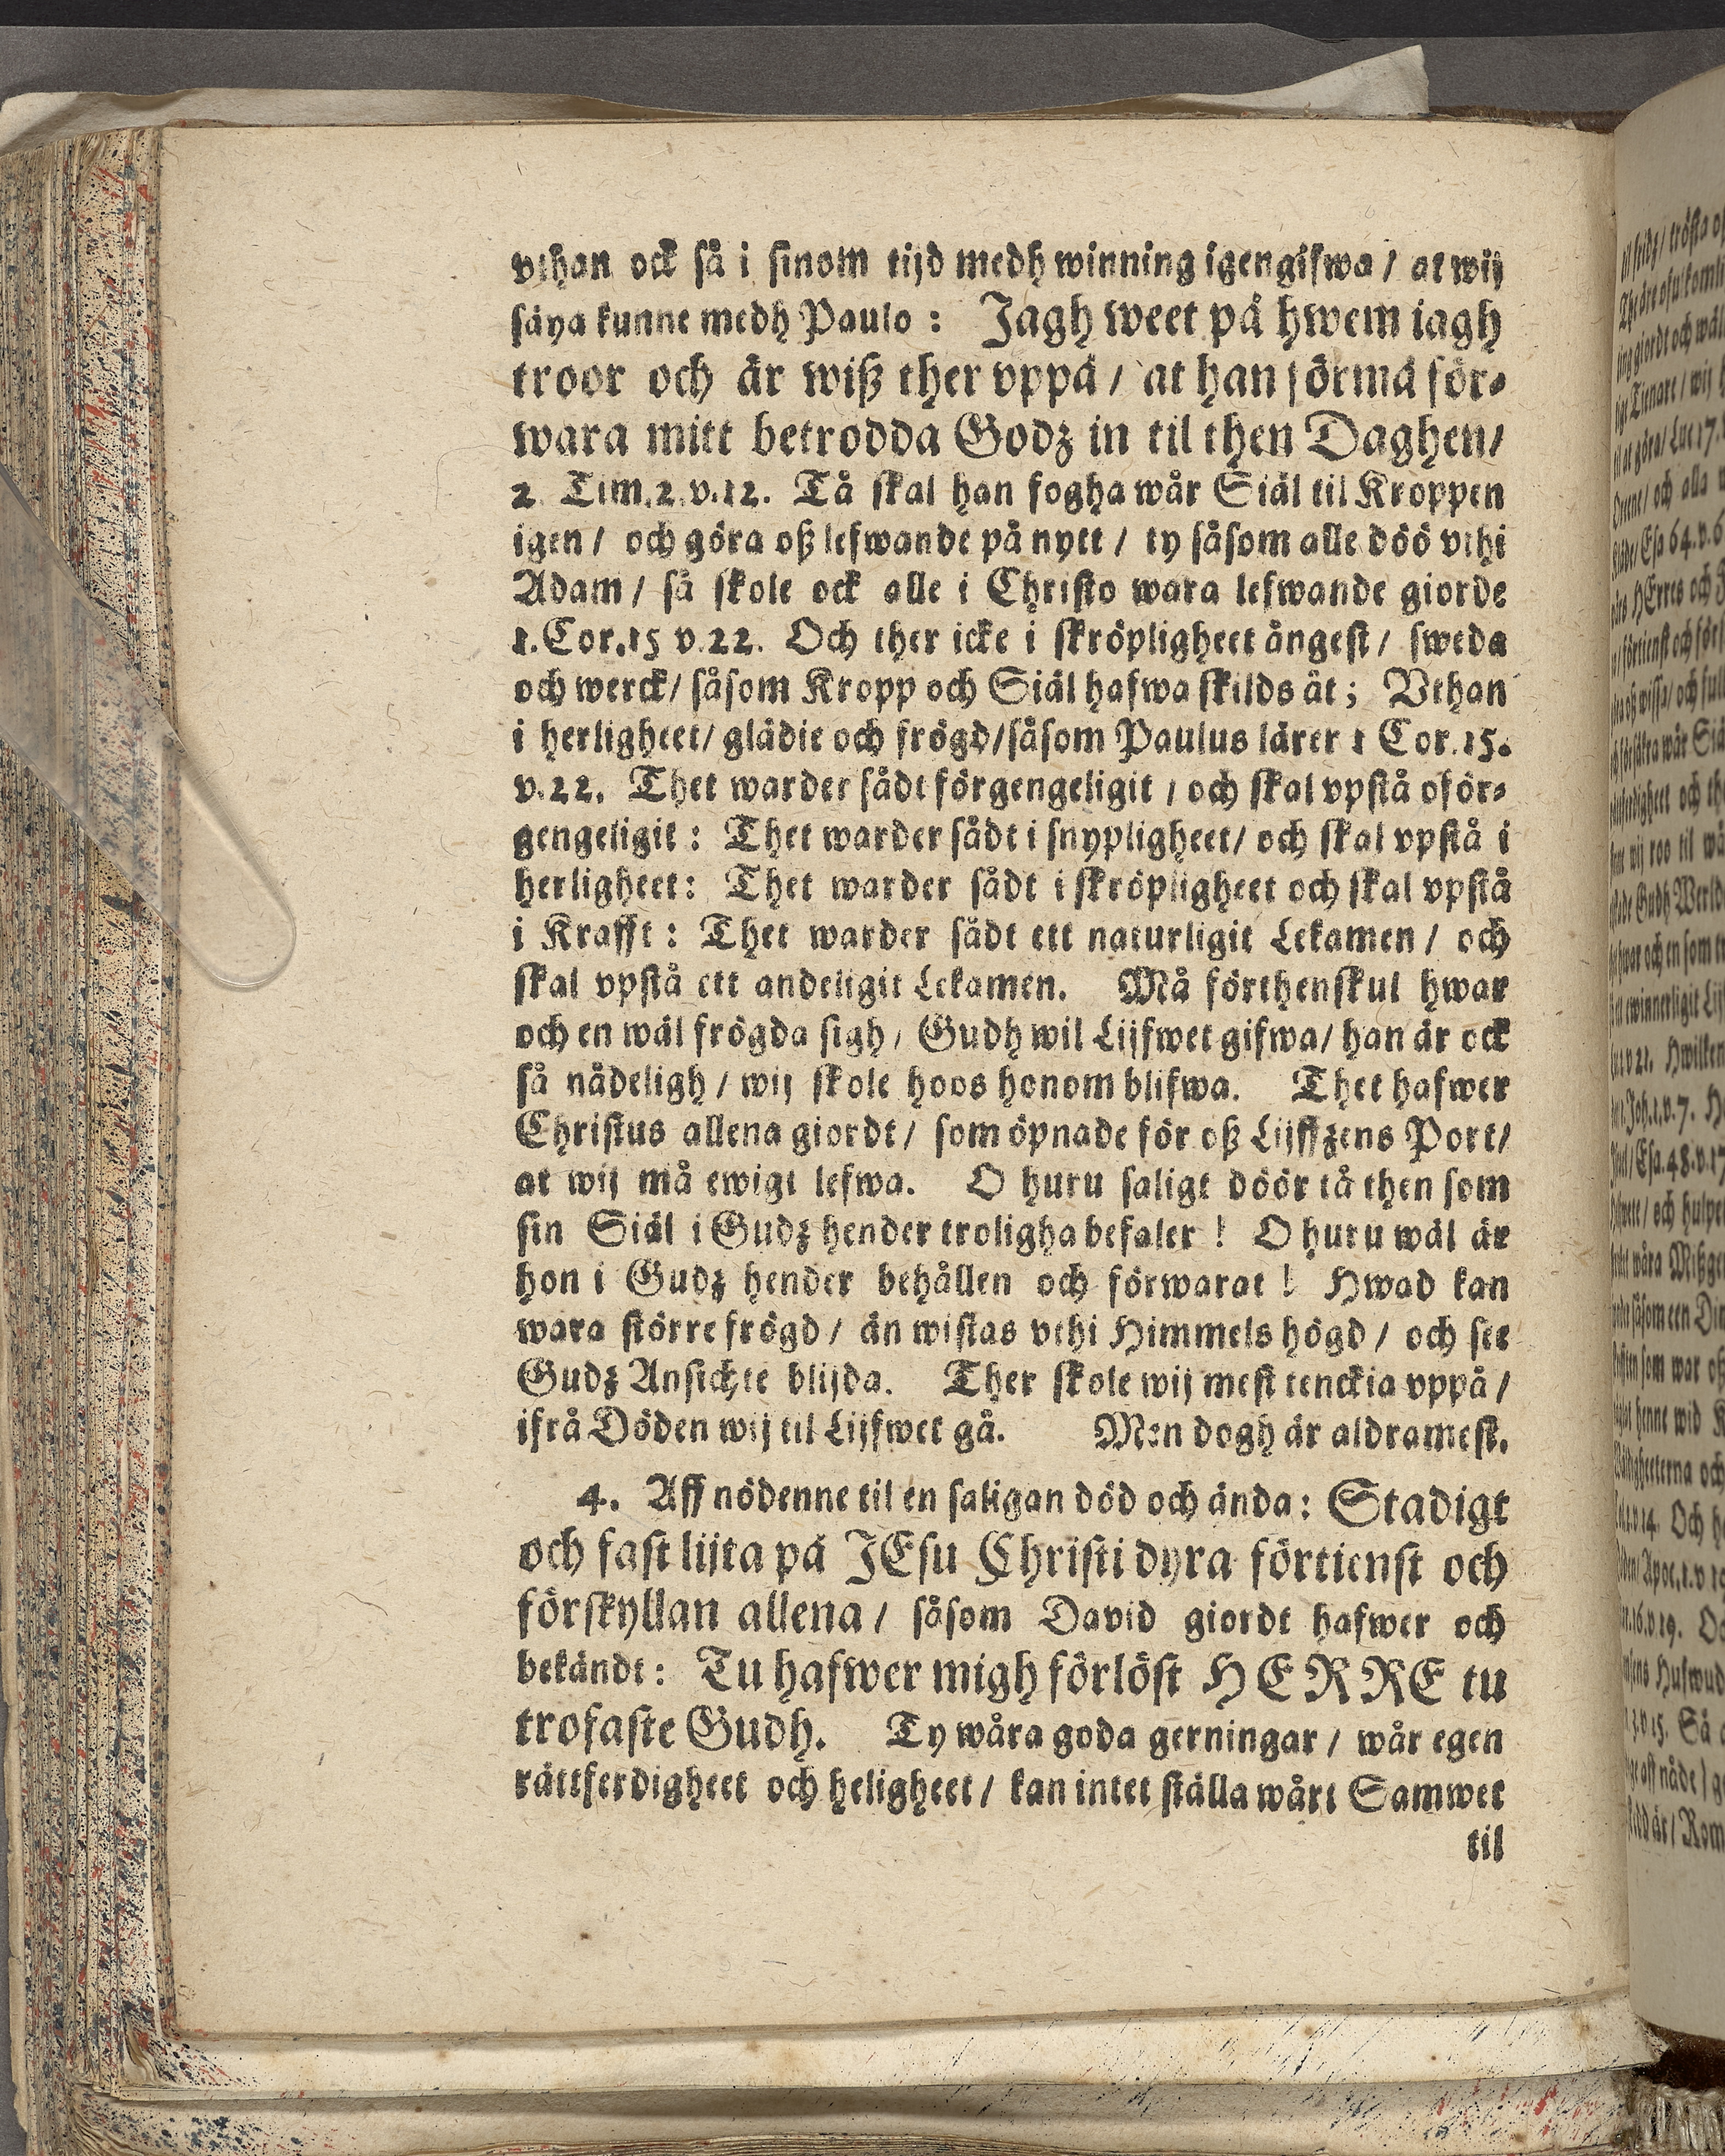 vthan ock så i sinom tijd medh winning igengifwa / at wij
säya kunne medh Paulo : Jagh weet på hwem iagh
troor och är wiß ther vppå / at han förmå för-
wara mitt betrodda Godz in til then Daghen /
2 Tim. 2. v. 12. Tå skal han fogha wår Siäl til Kroppen
igen / och göra oß lefwande på nytt / ty såsom alle döö vthi
Adam / så skole ock alle i Christo wara lefwande giorde
1. Cor. 15 v. 22. Och ther icke i skröpligheet ångest / sweda
och werck / såsom Kropp och Siäl hafwa skilds åt ; Vthan
i herligheet / glädie och frögd / såsom Paulus lärer 1 Cor. 15.
v. 22. Thet warder sådt förgengeligit / och skal vpstå oför-
gengeligit : Thet warder sådt i snypligheet / och skal vpstå i
herligheet : Thet warder sådt i skröpligheet och skal vpstå
i Krafft : Thet warder sådt ett naturligit Lekamen / och
skal vpstå ett andeligit Lekamen. Må förthenskul hwar
och en wäl frögda sigh / Gudh wil Lijfwet gifwa / han är ock
så nådeligh / wij skole hoos honom blifwa. Thet hafwer
Christus allena giordt / som öpnade för oß Lijffzens Port /
at wij må ewigt lefwa. O huru saligt döör tå then som
sin Siäl i Gudz hender troligha befaler ! O huru wäl är
hon i Gudz hender behållen och förwarat ! Hwad kan
wara större frögd / än wistas vthi Himmels högd / och see
Gudz Ansichte blijda. Ther skole wij mest tenckia vppå /
ifrå Döden wij til Lijfwet gå. Men dogh är aldramest.
4. Aff nödenne til en saligan död och ända : Stadigt
och fast lijta på JEsu Christi dyra förtienst och
förskyllan allena / såsom David giordt hafwer och
bekändt : Tu hafwer migh förlöst HERRE tu
trofaste Gudh. Ty wåra goda gerningar / wår egen
rättferdigheet och heligheet / kan intet ställa wårt Samwet
til